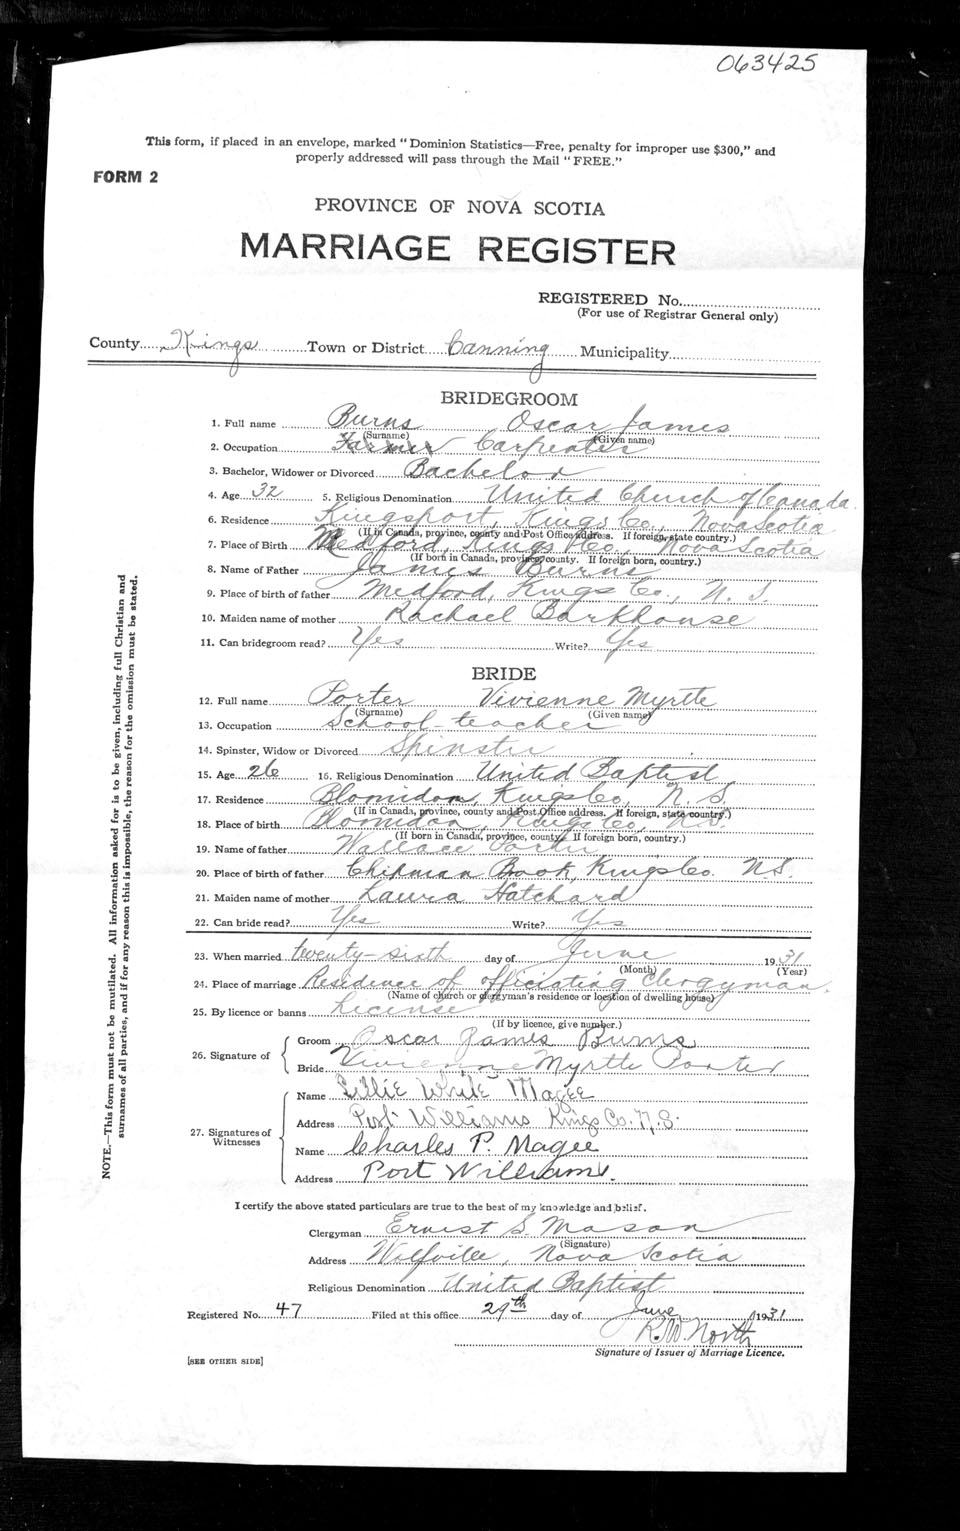 063425
This form, if placed in an envelope, marked "Dominion Statistics—Free, penalty for improper use $300," and
properly addressed will pass through the Mail "FREE."
FORM 2
PROVINCE OF NOVA SCOTIA
MARRIAGE REGISTER
REGISTERED No.
(For use of Registrar General only)
County Kings Town or District Canning Municipality
BRIDEGROOM
1. Full name Burns Oscar James
(Surname) (Given name)
2. Occupation Farmer Carpenter
3. Bachelor, Widower or Divorced Bachelor
4. Age 32 5. Religious Denomination United Church of Canada
6. Residence Kingsport, Kings Co., Nova Scotia
(If in Canada, province, county and Post Office address. If foreign, state country.)
7. Place of Birth Medford, Kings Co., Nova Scotia
(If born in Canada, province, county. If foreign born, country.)
8. Name of Father James Burns
9. Place of birth of father Medford, Kings Co., N. S.
10. Maiden name of mother Rachael Barkhouse
11. Can bridegroom read? Yes Write? Yes
BRIDE
12. Full name Porter Vivienne Myrtle
(Surname) (Given name)
13. Occupation School-teacher
14. Spinster, Widow or Divorced Spinster
15. Age 26 16. Religious Denomination United Baptist
17. Residence Blomidon, Kings Co., N. S.
(If in Canada, province, county and Post Office address. If foreign, state country.)
18. Place of birth Blomidon, Kings Co., N.S.
(If born in Canada, province, county. If foreign born, country.)
19. Name of father Wallace Porter
20. Place of birth of father Chipman Brook, Kings Co. N.S.
21. Maiden name of mother Laura Hatchard
22. Can bride read? Yes Write? Yes
23. When married twenty-sixth day of June 1931
(Month) (Year)
24. Place of marriage Residence of officiating Clergyman.
(Name of church or clergyman's residence or location of dwelling house)
25. By licence or banns License
(If by licence, give number.)
26. Signature of
Groom Oscar James Burns
Bride Vivienne Myrtle Porter
27. Signatures of Witnesses
Name Lillie White Magee
Address Port Williams Kings Co. N.S.
Name Charles P. Magee
Address Port Williams.
I certify the above stated particulars are true to the best of my knowledge and belief.
Clergyman Ernest S. Mason
(Signature)
Address Wolfville, Nova Scotia
Religious Denomination United Baptist
Registered No. 47 Filed at this office 29th day of June 1931
R. W. North
Signature of Issuer of Marriage Licence.
[SEE OTHER SIDE]
NOTE.—This form must not be mutilated. All information asked for is to be given, including full Christian and
surnames of all parties, and if for any reason this is impossible, the reason for the omission must be stated.